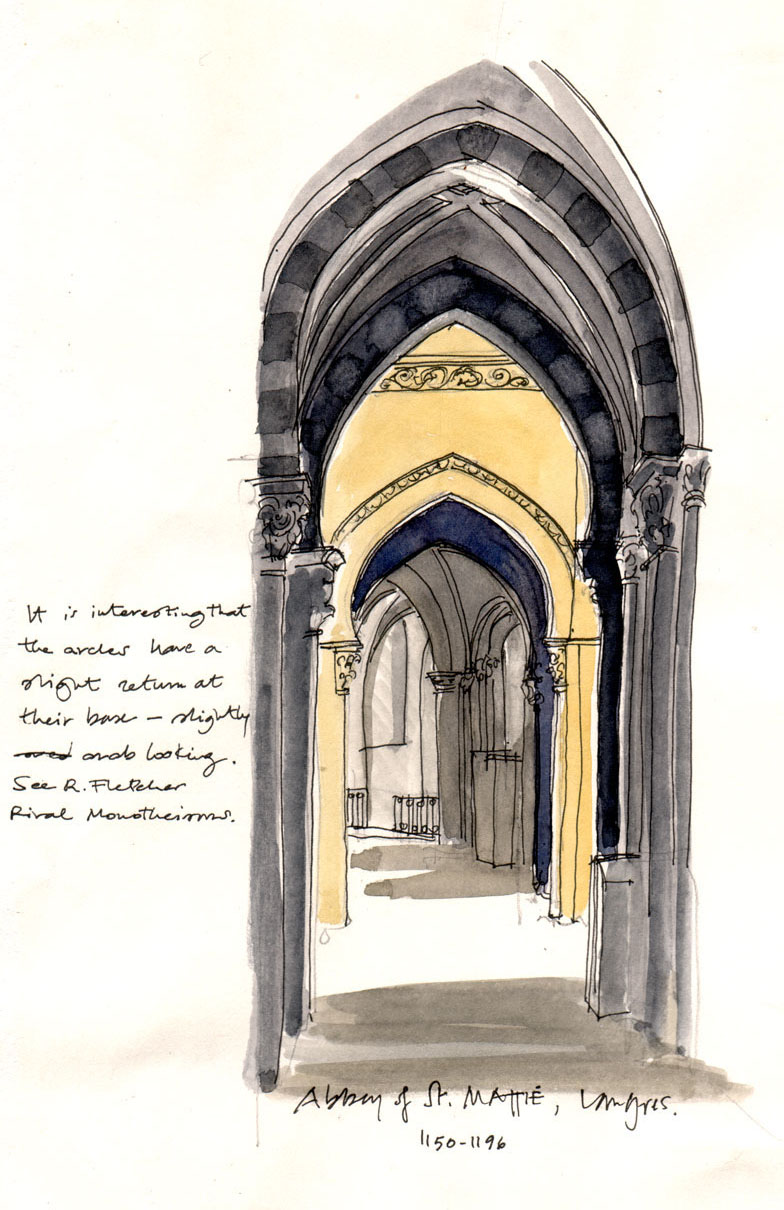 It is interesting that
the arches have a
slight return at
their base – slightly
arab looking.
See R. Fletcher
Rival Monotheisms.
Abbey of St. MATTIÉ, Langres.
1150-1196